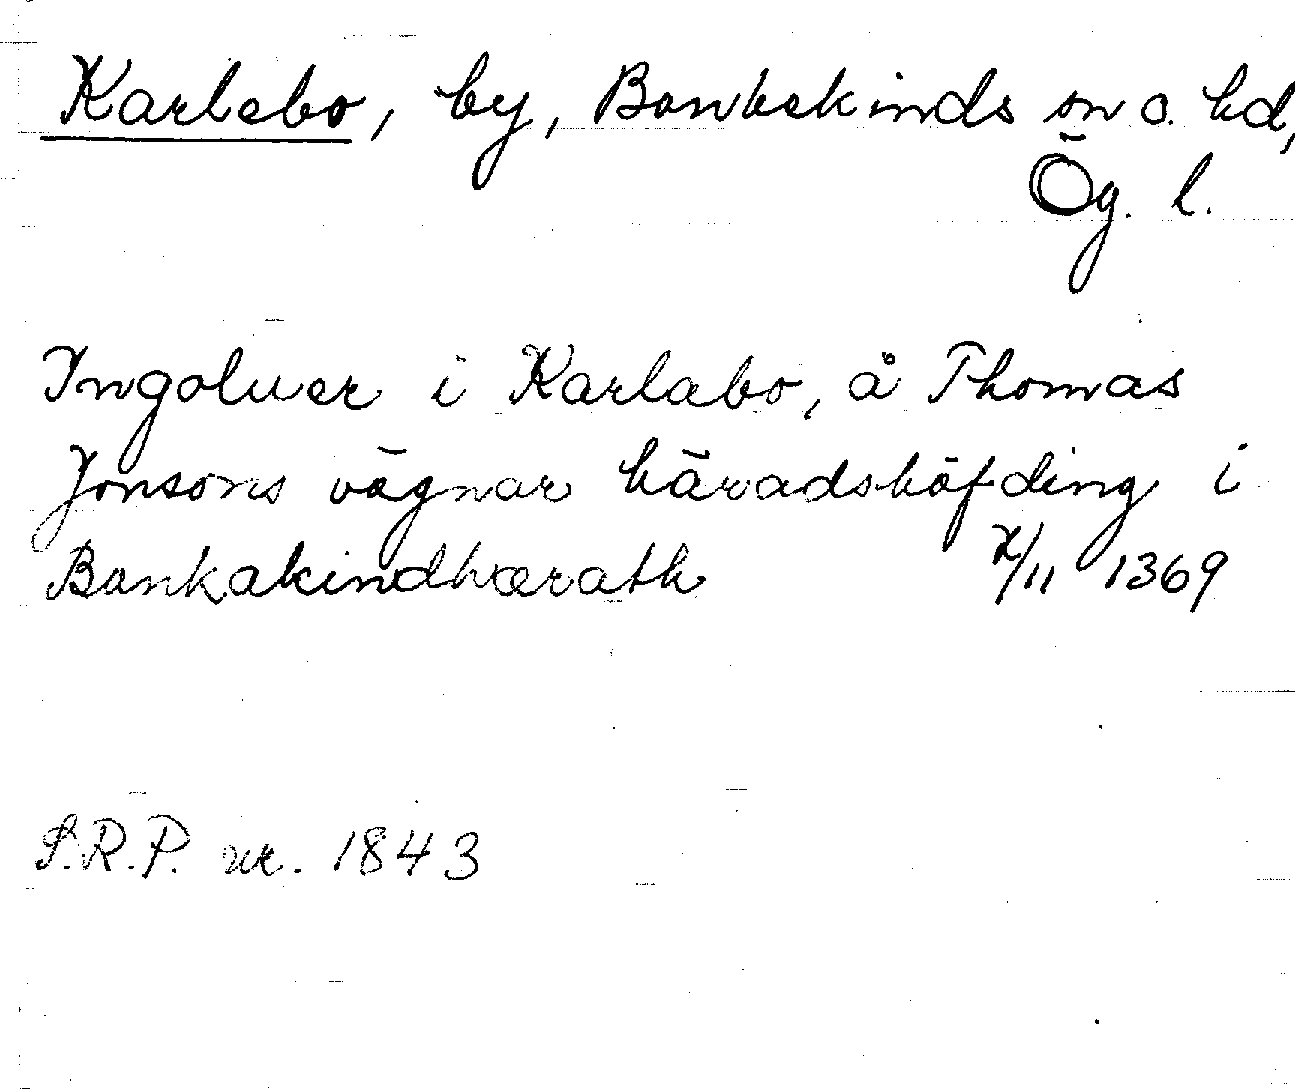 Karlebo, by, Bankekinds sn o. hd,
Ög. l.
Ingoluer i Karlabo, å Thomas
Jonsons vägnar häradshöfding i
Bankakindhærath /11 1369
S.R.P. nr. 1843